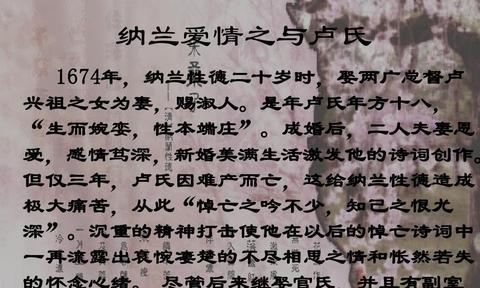 纳兰爱情之与卢氏
1674年，纳兰性德二十岁时，娶两广总督卢
兴祖之女为妻，赐淑人。是年卢氏年方十八，
“生而婉娈，性本端庄”。成婚后，二人夫妻恩
爱，感情笃深，新婚美满生活激发他的诗词创作。
但仅三年，卢氏因难产而亡，这给纳兰性德造成
极大痛苦，从此“悼亡之吟不少，知己之恨尤
深”。沉重的精神打击使他在以后的悼亡诗词中
一再流露出哀惋凄楚的不尽相思之情和怅然若失
的怀念心绪。尽管后来继娶官氏，并且有副室